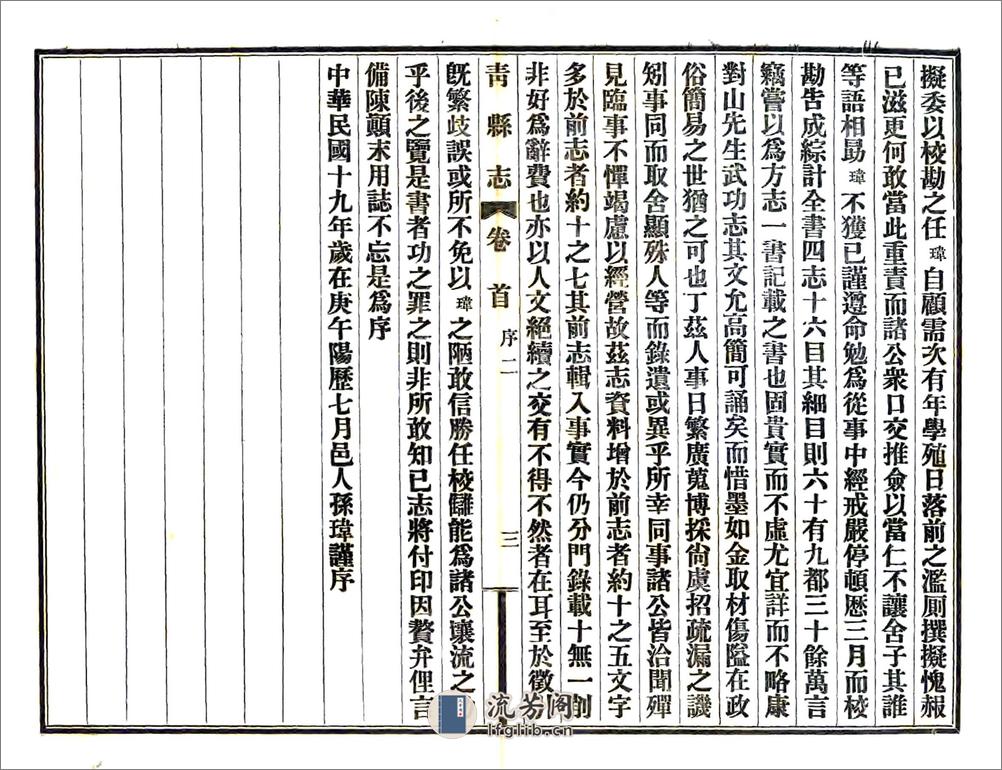 擬委以校勘之任瑋自顧需次有年學殖日落前之濫厠撰擬愧赧
已滋更何敢當此重責而諸公衆口交推僉以當仁不讓舍子其誰
等語相勗瑋不獲已謹遵命勉爲從事中經戒嚴停頓歷三月而校
勘告成綜計全書四志十六目其細目則六十有九都三十餘萬言
竊嘗以爲方志一書記載之書也固貴實而不虛尤宜詳而不略康
對山先生武功志其文允高簡可誦矣而惜墨如金取材傷隘在政
俗簡易之世猶之可也丁茲人事日繁廣蒐博採尙虞招疏漏之譏
矧事同而取舍顯殊人等而錄遺或異乎所幸同事諸公皆洽聞殫
見臨事不憚竭慮以經營故茲志資料增於前志者約十之五文字
多於前志者約十之七其前志輯入事實今仍分門錄載十無一削
非好爲辭費也亦以人文絕續之交有不得不然者在耳至於徵引
靑縣志 卷首 序二 三
旣繁歧誤或所不免以瑋之陋敢信勝任校讎能爲諸公瓌流之
乎後之覽是書者功之罪之則非所敢知已志將付印因贅弁俚言
備陳顚末用誌不忘是爲序
中華民國十九年歲在庚午陽歷七月邑人孫瑋謹序
流芳阁
lfglib.cn